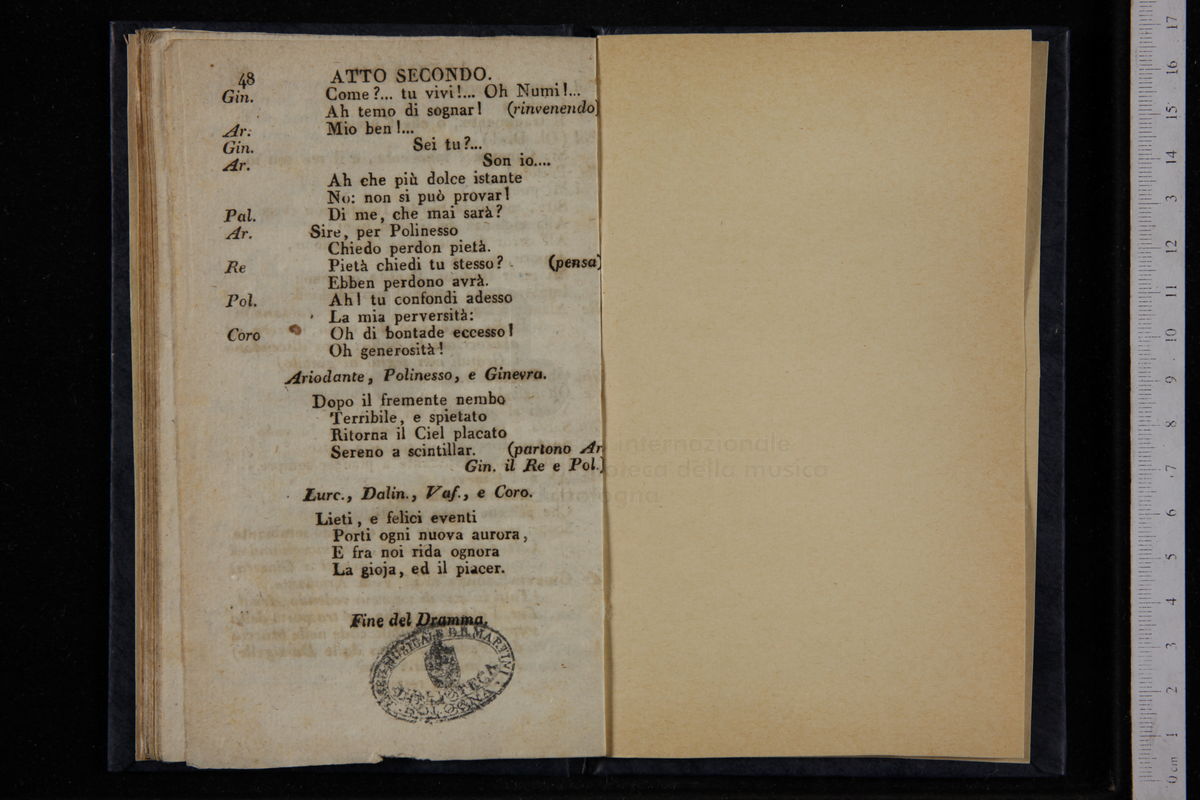 48 ATTO SECONDO.
Gin. Come?... tu vivi!... Oh Numi!...
Ah temo di sognar! (rinvenendo)
Ar. Mio ben!...
Gin. Sei tu?...
Ar. Son io....
Ah che più dolce istante
No: non si può provar!
Pal. Di me, che mai sarà?
Ar. Sire, per Polinesso
Chiedo perdon pietà.
Re Pietà chiedi tu stesso? (pensa)
Ebben perdono avrà.
Pol. Ah! tu confondi adesso
La mia perversità:
Coro Oh di bontade eccesso!
Oh generosità!
Ariodante, Polinesso, e Ginevra.
Dopo il fremente nembo
Terribile, e spietato
Ritorna il Ciel placato
Sereno a scintillar. (partono Ar
Gin. il Re e Pol.)
Lurc., Dalin., Vaf., e Coro.
Lieti, e felici eventi
Porti ogni nuova aurora,
E fra noi rida ognora
La gioja, ed il piacer.
Fine del Dramma.
MUSICALE B. MARTINI
BIBLIOTECA
BOLOGNA
internazionale
della musica